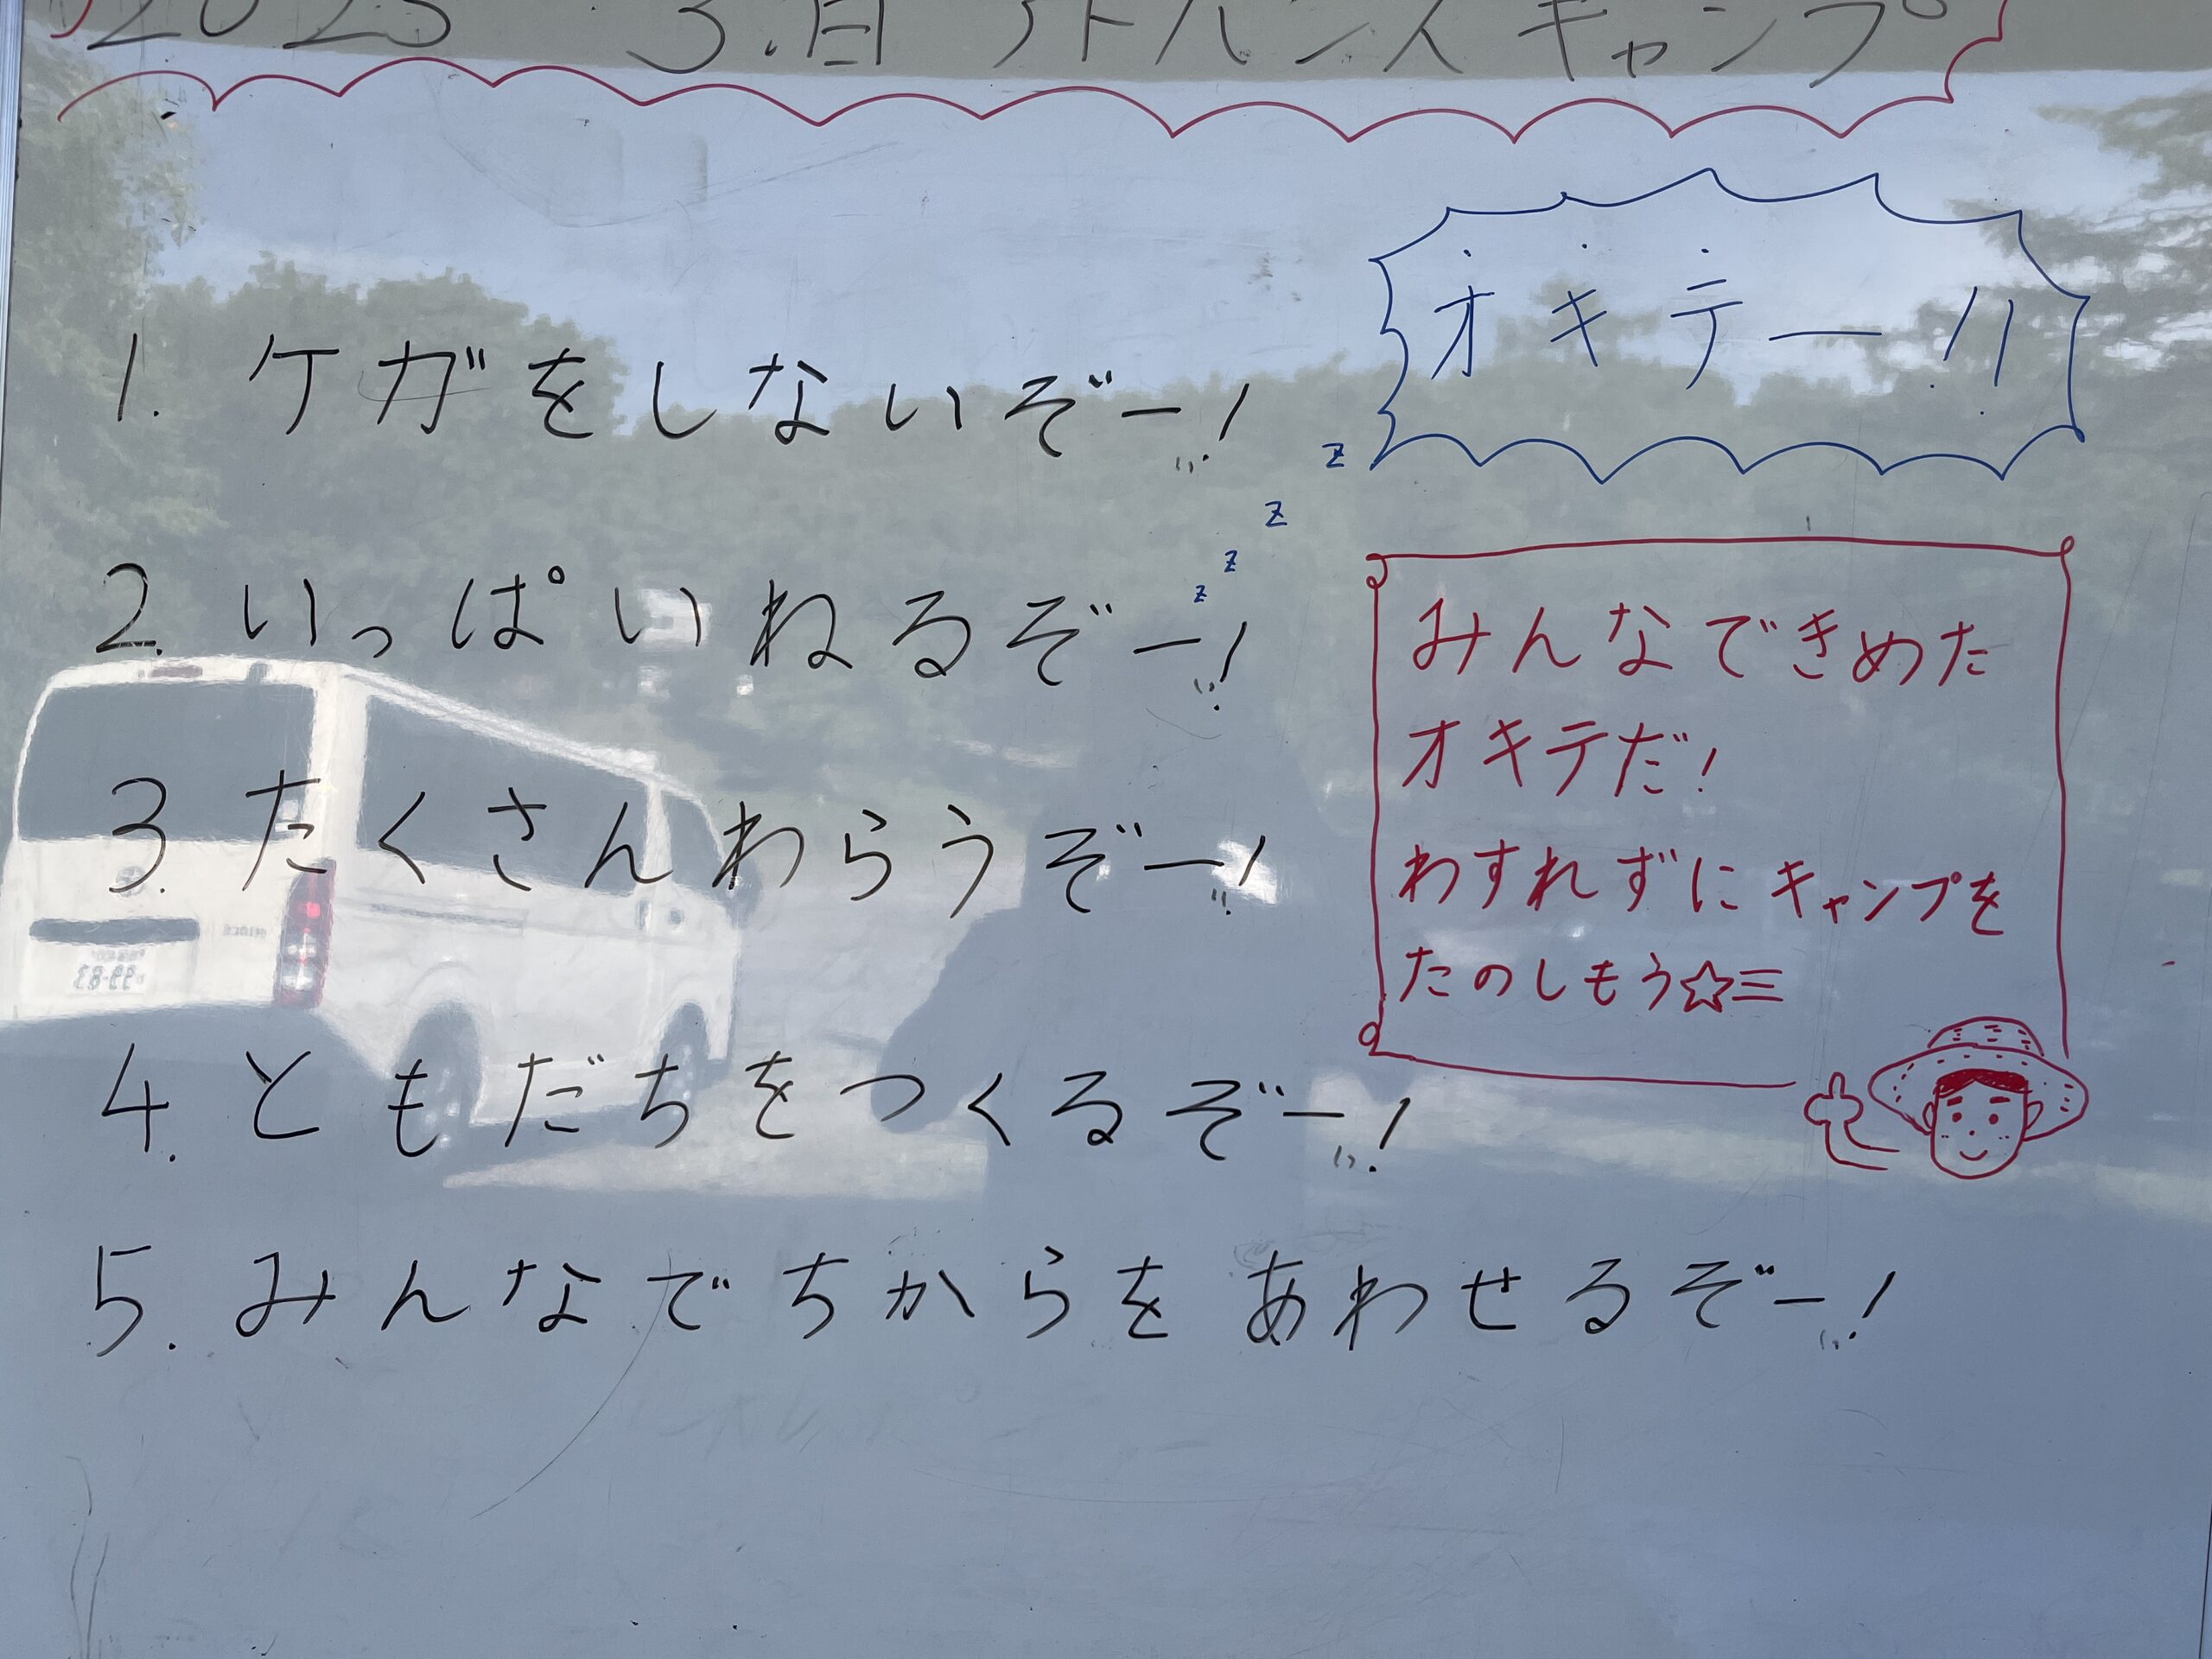 2025 キャンプ
オキテー!!
1. ケガをしないぞー!
2. いっぱいねるぞー!
z z z z
3. たくさんわらうぞー!
4. ともだちをつくるぞー!
5. みんなでちからをあわせるぞー!
みんなできめた
オキテだ!
わすれずにキャンプを
たのしもう☆三